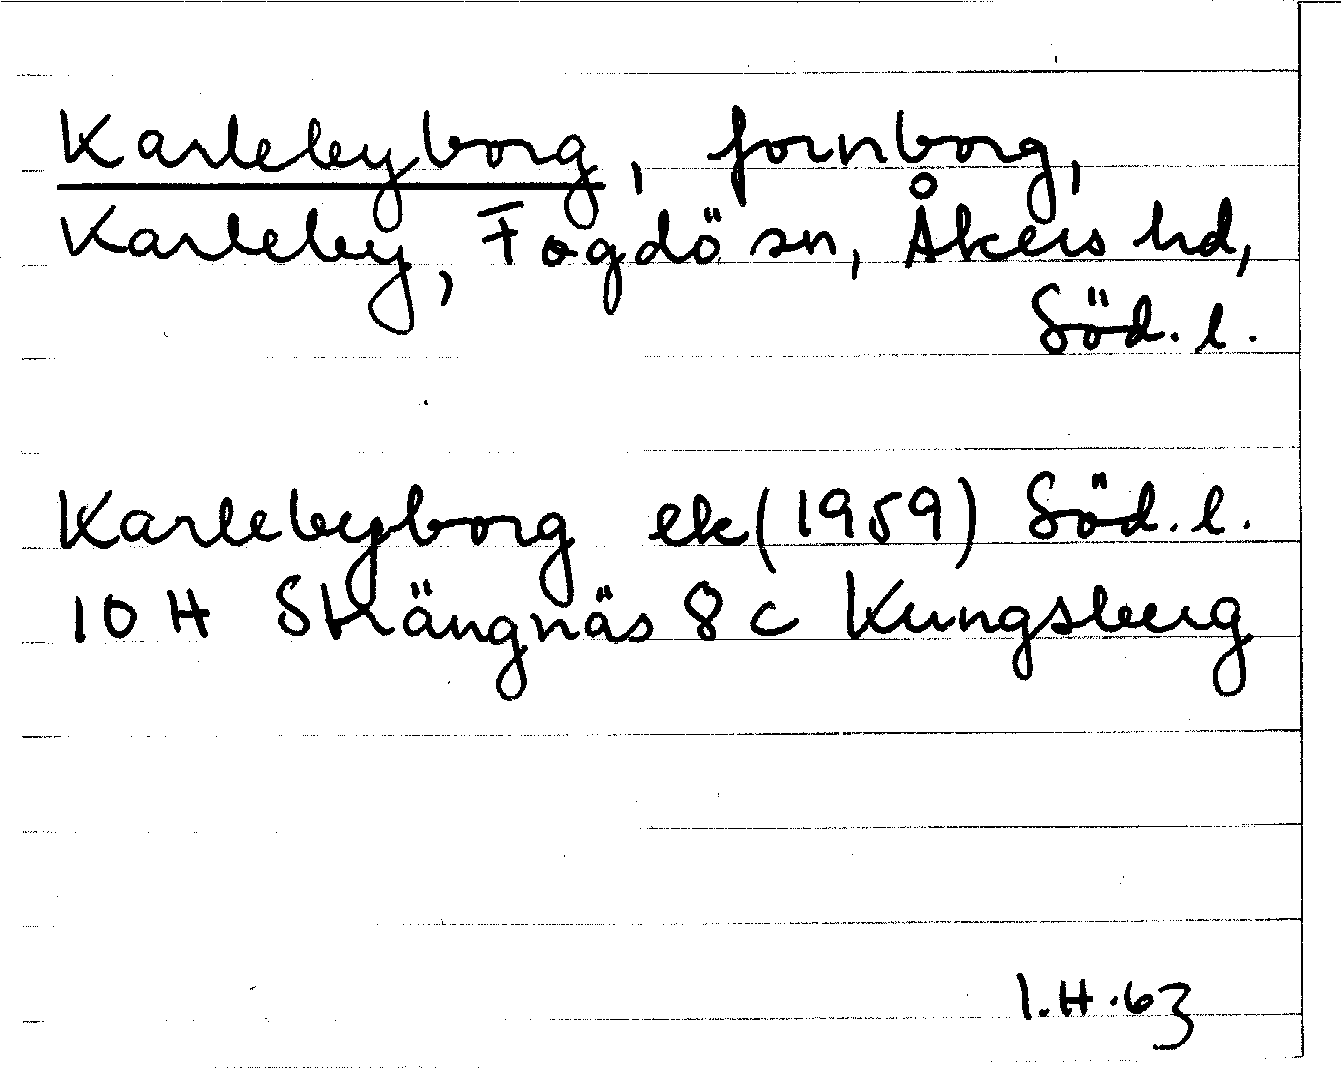 Karlebyborg, fornborg,
Karleby, Fogdö sn, Åkers hd,
Söd. l.
Karlebyborg ek (1959) Söd. l.
10 H Strängnäs 8 c Kungsberg
I.H.63